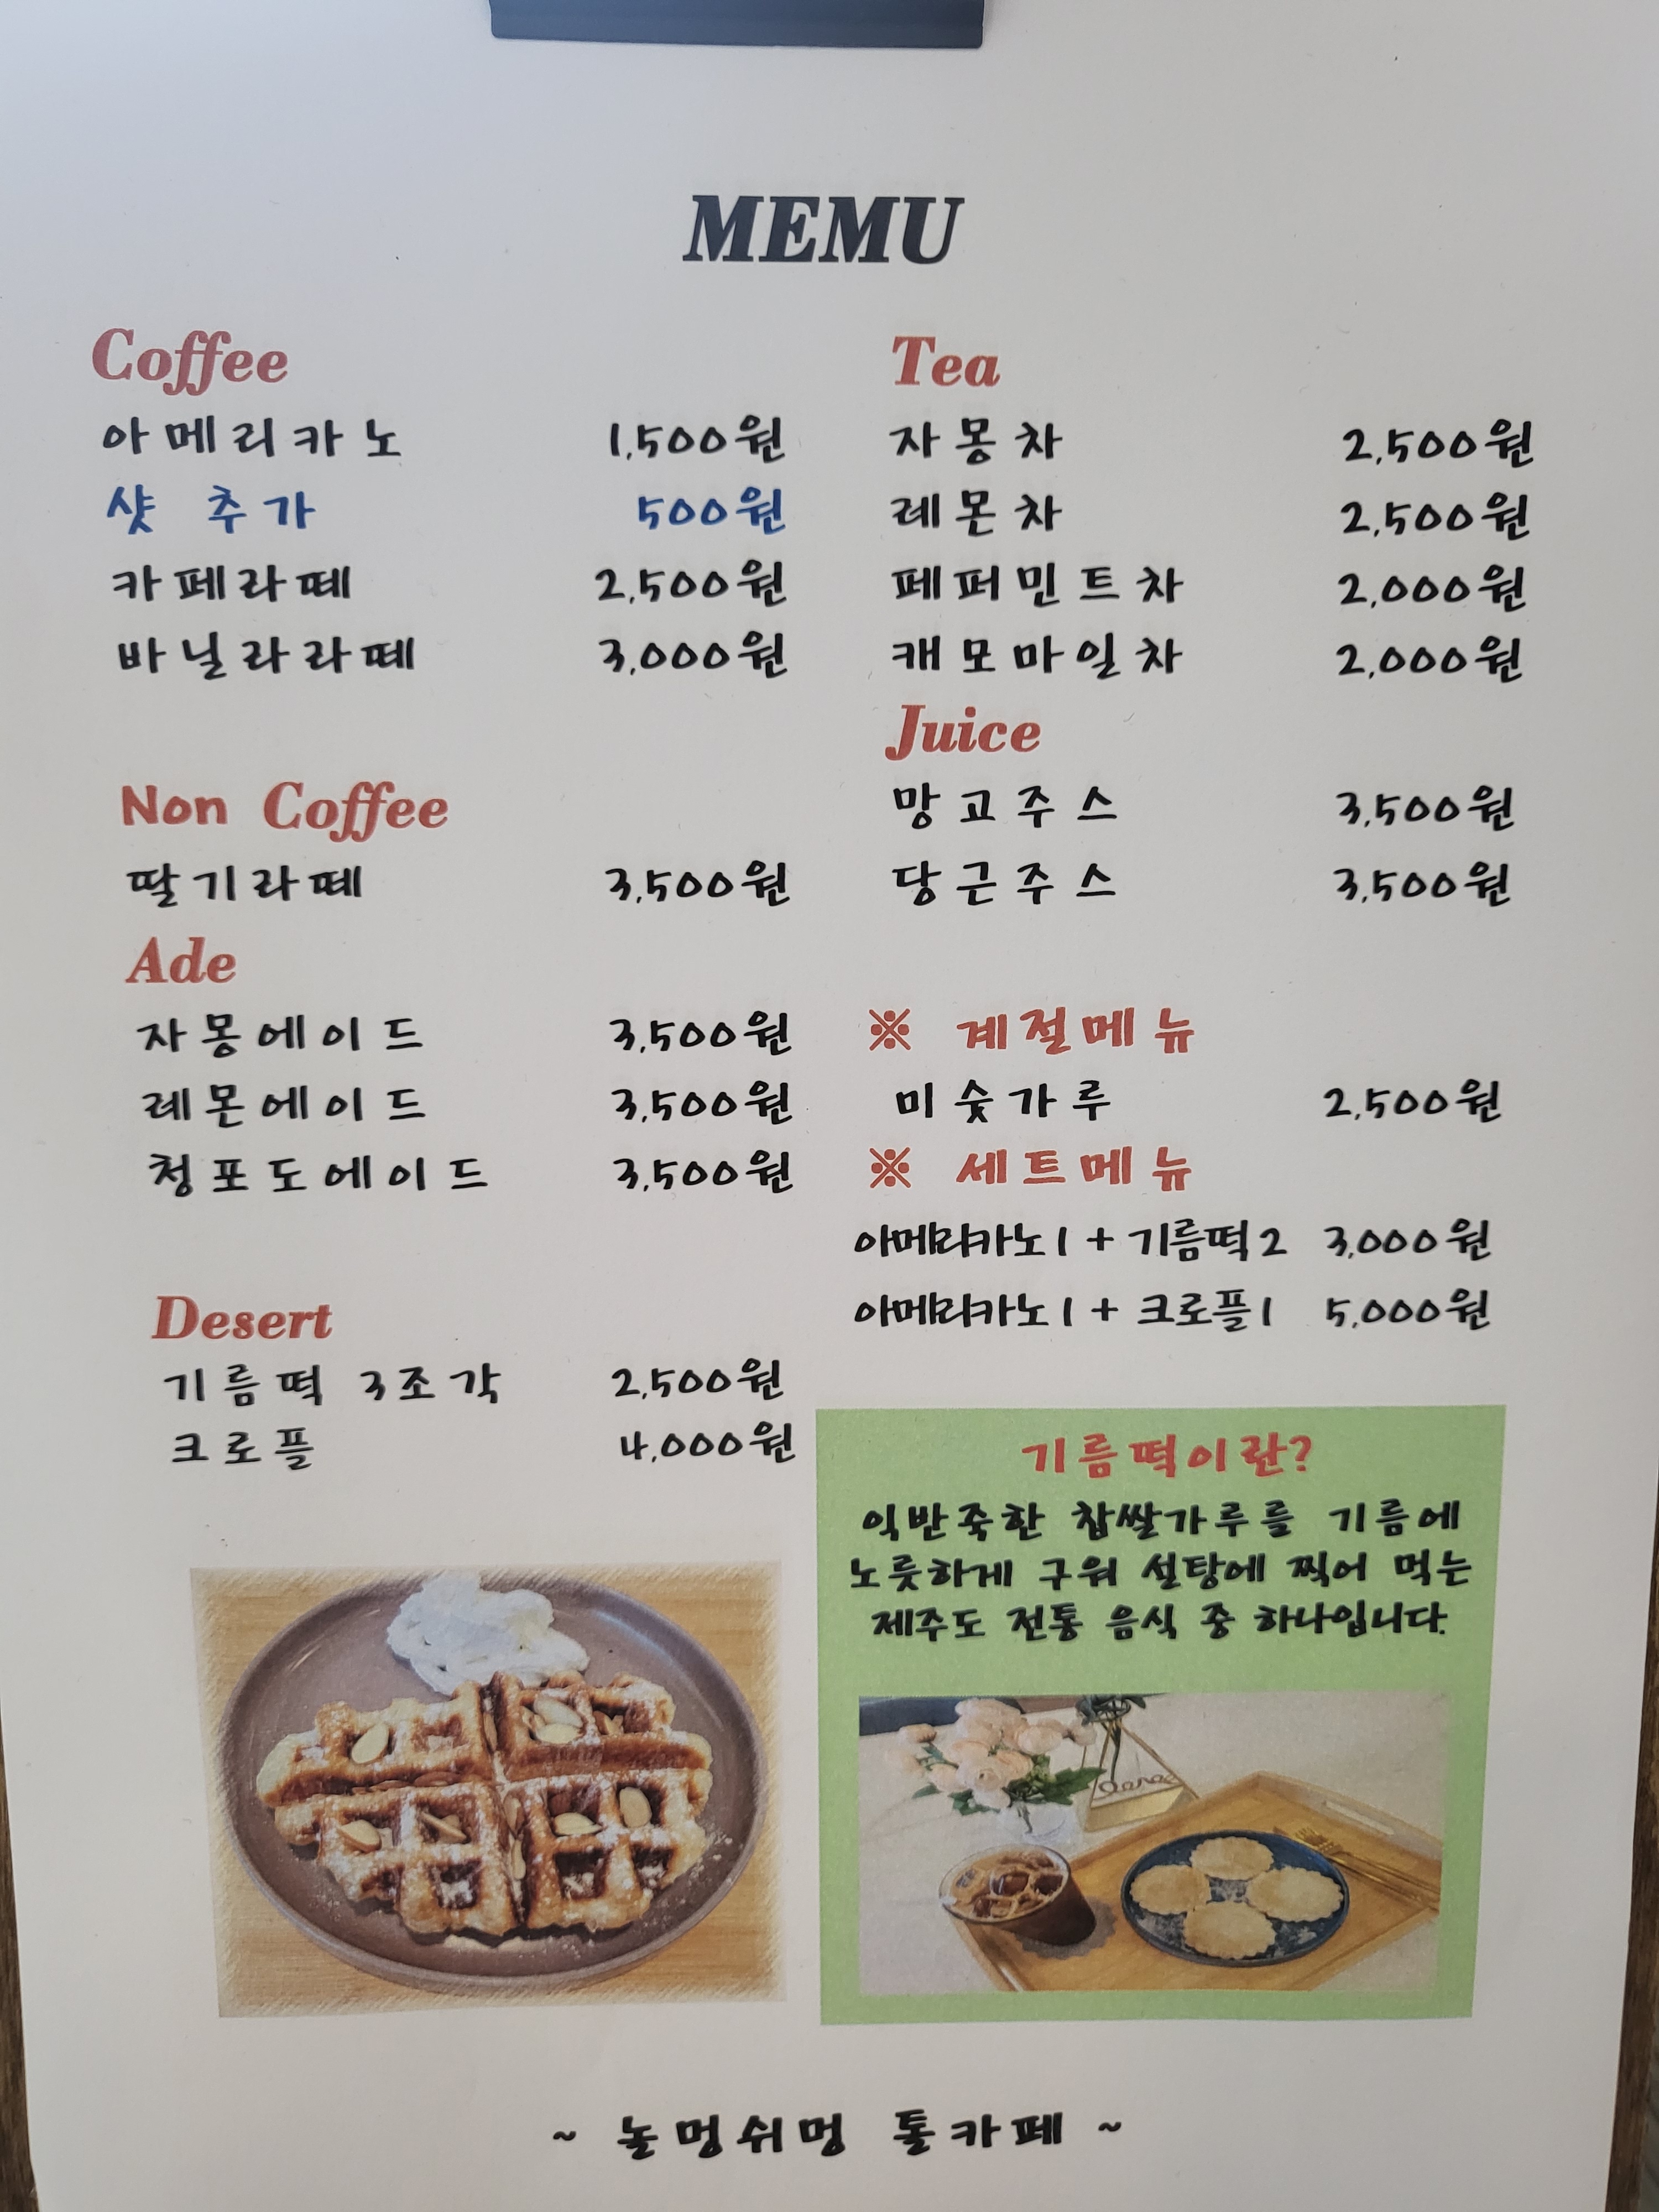 MEMU
Coffee
아메리카노 1,500원
샷 추가 500원
카페라떼 2,500원
바닐라라떼 3,000원
Non Coffee
딸기라떼 3,500원
Ade
자몽에이드 3,500원
레몬에이드 3,500원
청포도에이드 3,500원
Desert
기름떡 3조각 2,500원
크로플 4,000원
Tea
자몽차 2,500원
레몬차 2,500원
페퍼민트차 2,000원
캐모마일차 2,000원
Juice
망고주스 3,500원
당근주스 3,500원
※ 계절메뉴
미숫가루 2,500원
※ 세트메뉴
아메리카노1 + 기름떡2 3,000원
아메리카노1 + 크로플1 5,000원
기름떡이란?
익반죽한 찹쌀가루를 기름에
노릇하게 구워 설탕에 찍어 먹는
제주도 전통 음식 중 하나입니다.
~ 놀멍쉬멍 톨카페 ~